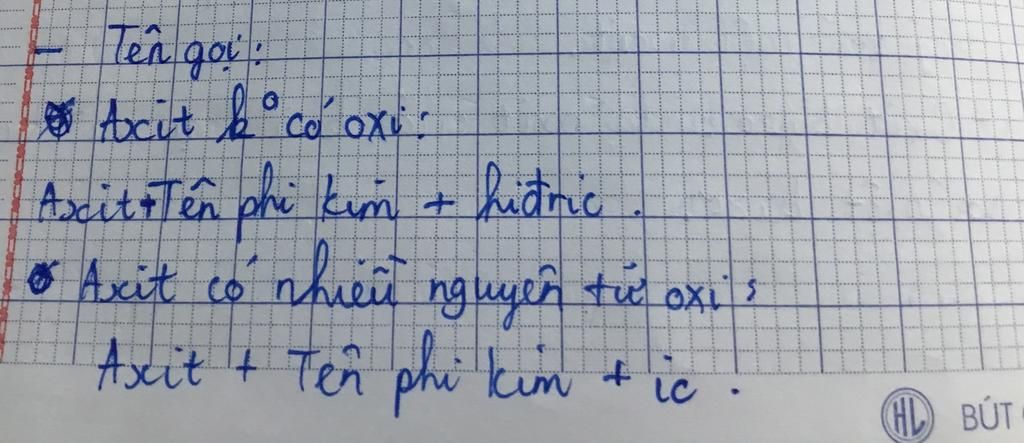 - Tên gọi:
Axit k° có oxi:
Axit+Tên phi kim + hiđric.
Axit có nhiều nguyên tử oxi:
Axit + Tên phi kim + ic.
HL BÚT